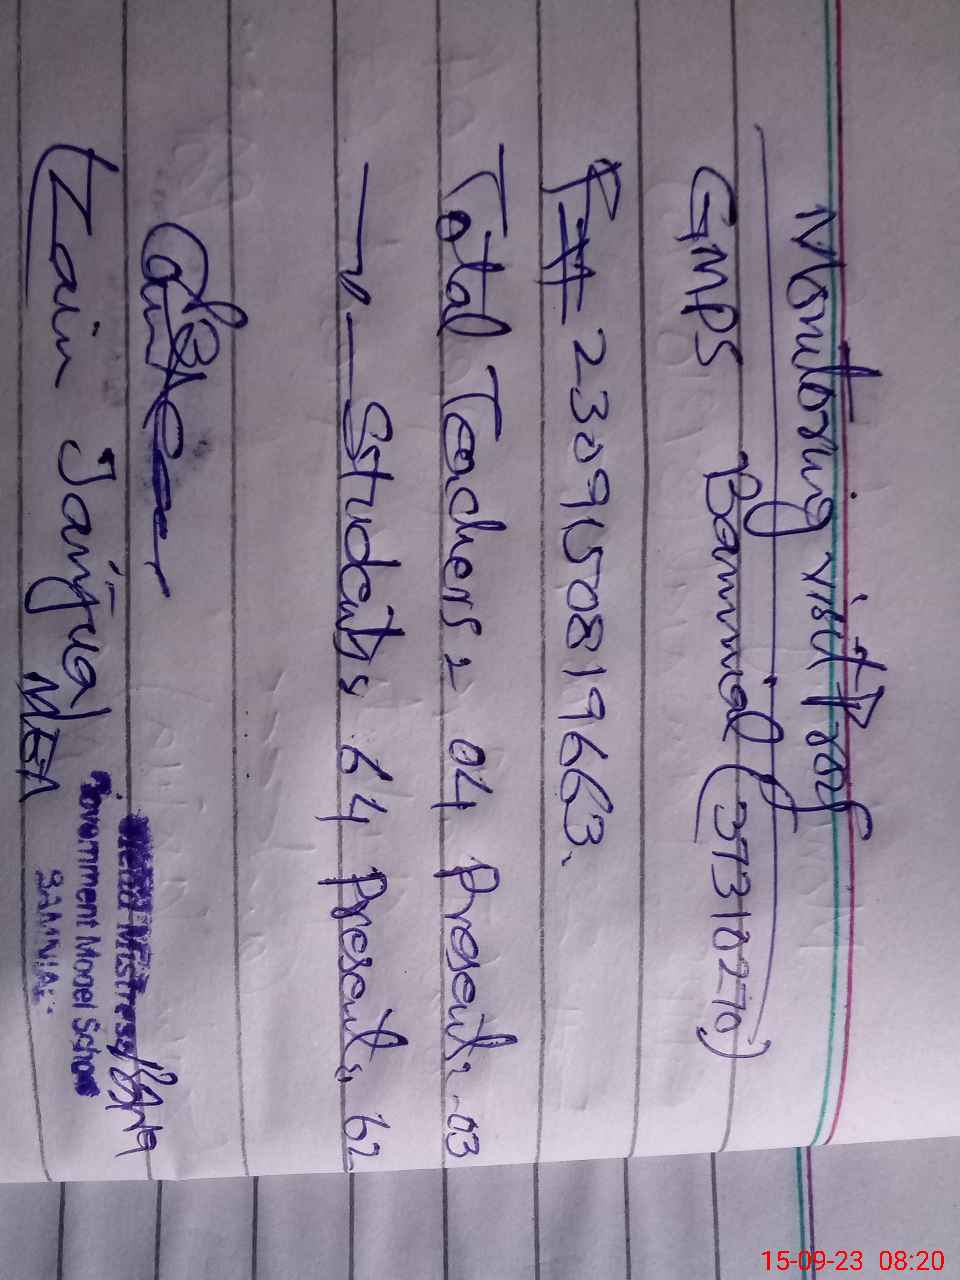 Monitoring visit Prof
GMPS Bamnial (37310270)
F# 2309150819663.
Total Teachers = 04 Present = 03
—〃— Students = 64 Present = 62
Zain Janjua
MEA
Head Mistress
Government Model School
BAMNIAL
15-09-23 08:20